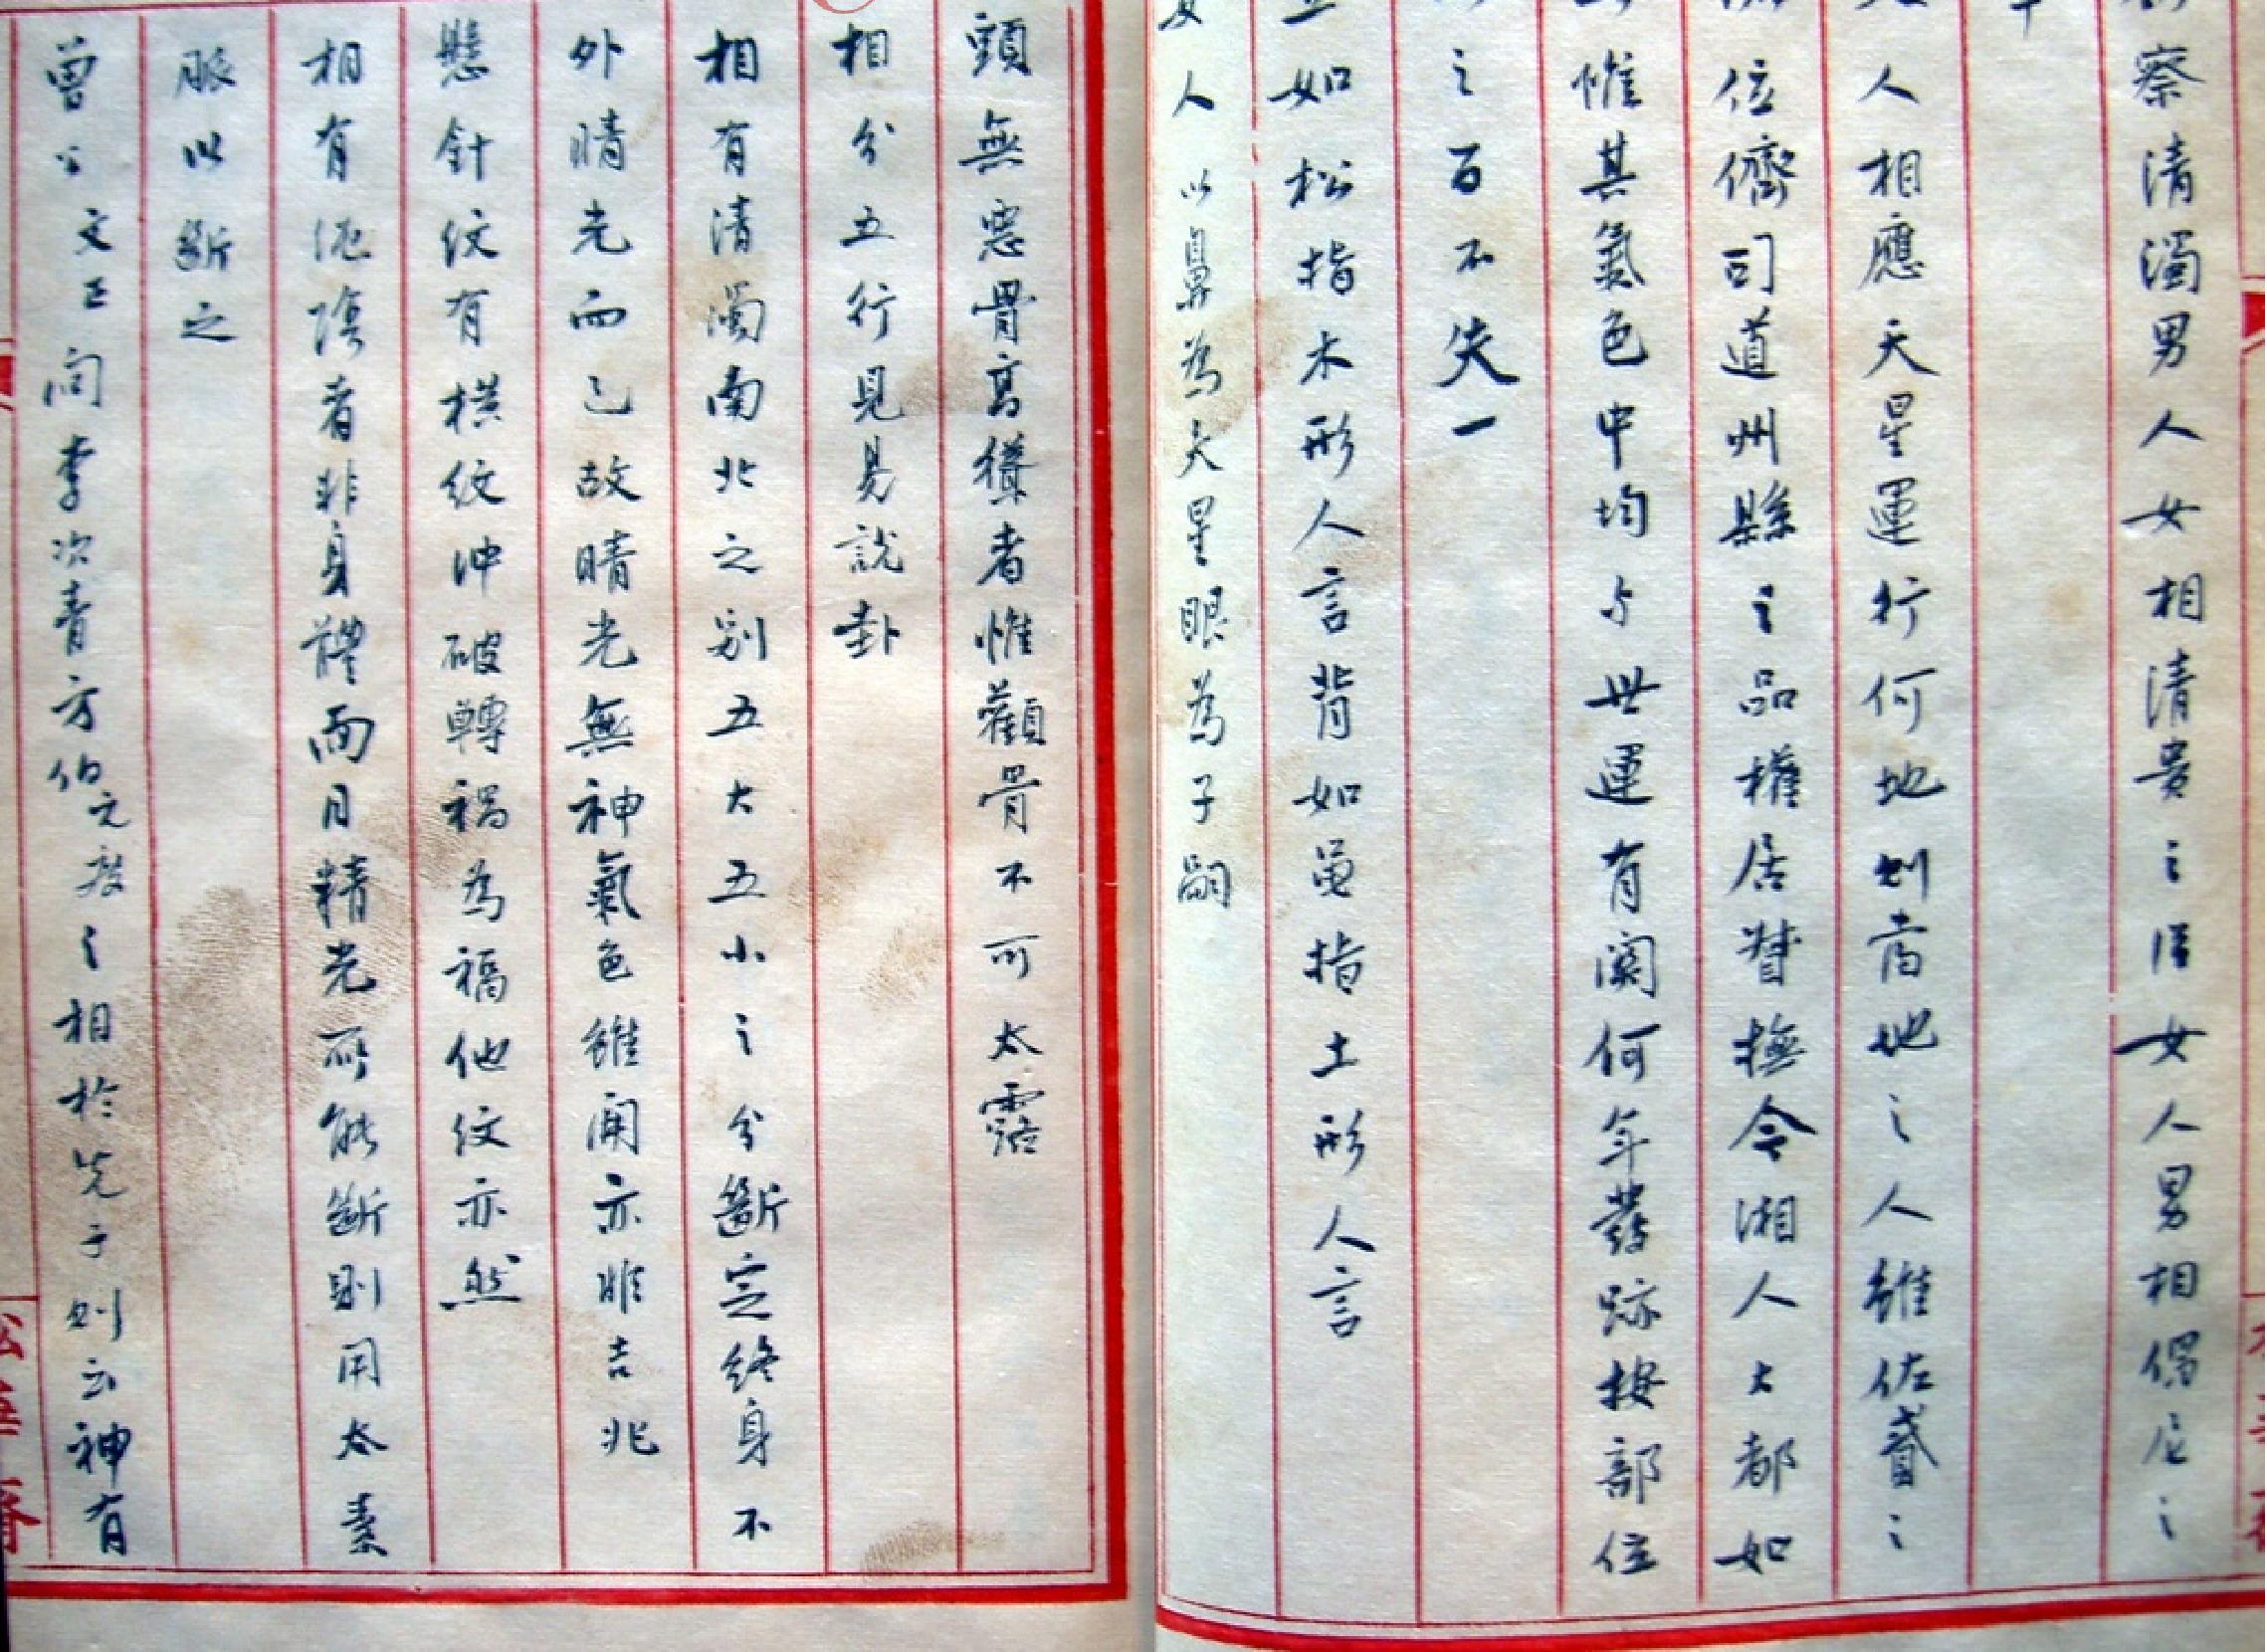 察清濁男人女相清貴之淫女人男相偶尼之
人相應天星運行何地則當地之人雖佐貳之
位儕司道州縣之品權居督撫令湘人大都如
惟其氣色中均与世運有関何年發跡按部位
之百不失一
如松指木形人言背如黽指土形人言
女人 以鼻為夫星眼為子嗣
頭無惡骨高聳者惟顴骨不可太露
相分五行見易說卦
相有清濁南北之别五大五小之分斷定終身不
外晴光而已故晴光無神氣色雖開亦非吉兆
懸針紋有橫紋沖破轉禍為福他紋亦然
相有陰者非身體面目精光所能斷則用太素
脈以斷之
曾公文正问李次青方伯元度之相於先子则云神有